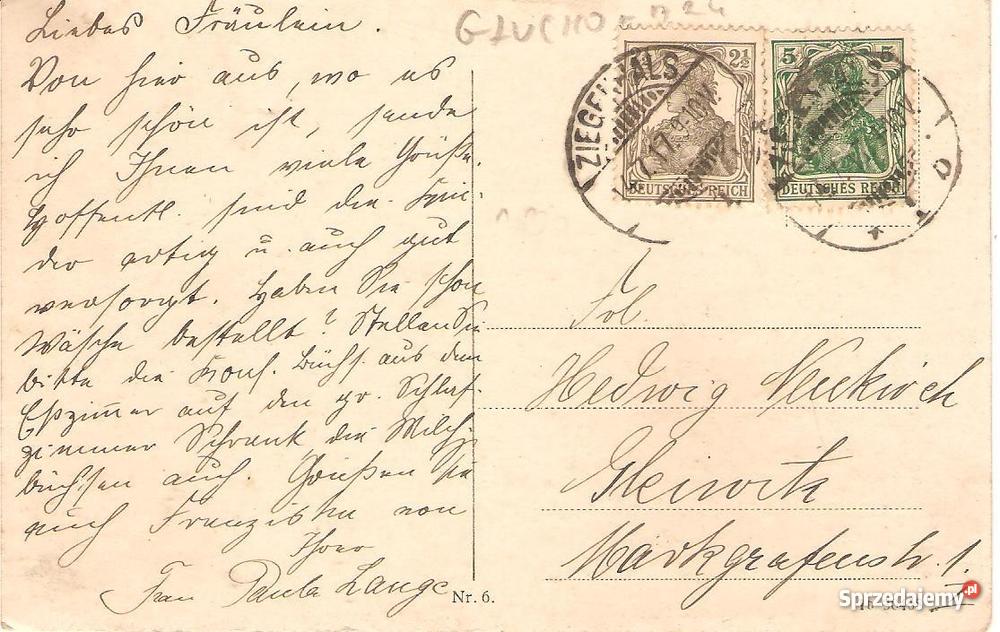 Liebes Fräulein.
Von hier aus, wo es
sehr schön ist, sende
ich Ihnen viele Grüße.
Hoffentl. sind die Kin-
der artig u. auch gut
versorgt. Haben Sie schon
Wäsche bestellt? Stellen Sie
bitte die Konf. Büchs. aus dem
Eßzimmer auf den gr. Schlaf-
zimmer Schrank, die Milch-
büchsen auch. Grüßen Sie
auch Franziska von
Ihrer
Frau Paula Lange
GŁUCHO
ZIEGENHALS
17. 9-10V.
2½
DEUTSCHES REICH
5 5
DEUTSCHES REICH
Frl.
Hedwig Neukirch
Gleiwitz
Markgrafenstr. 1.
Nr. 6.
Sprzedajemy.pl